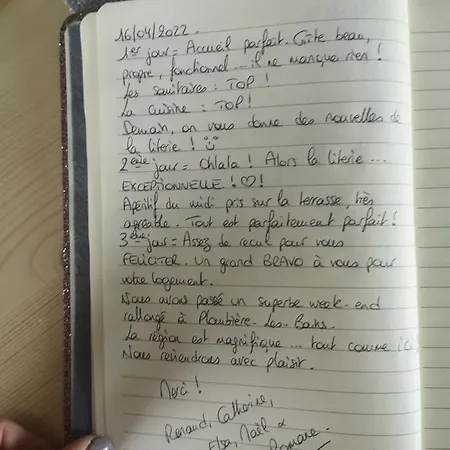 16/04/2022.
1er jour = Accueil parfait. Gîte beau,
propre, fonctionnel... il ne manque rien !
Les sanitaires : TOP !
La cuisine : TOP !
Demain, on vous donne des nouvelles de
la literie !
2ème jour = Ohlala ! Alors la literie ...
EXCEPTIONNELLE ! ♡ !
Apéritif du midi pris sur la terrasse, très
agréable. Tout est parfaitement parfait !
3ème jour = Assez de recul pour vous
FELICITER. Un grand BRAVO à vous pour
votre logement.
Nous avons passé un superbe week-end
rallongé à Plombière-les-Bains.
La région est magnifique ... tout comme ici
Nous reviendrons avec plaisir.
Merci !
Renaud, Catherine,
Elsa, Maël &
Romane.